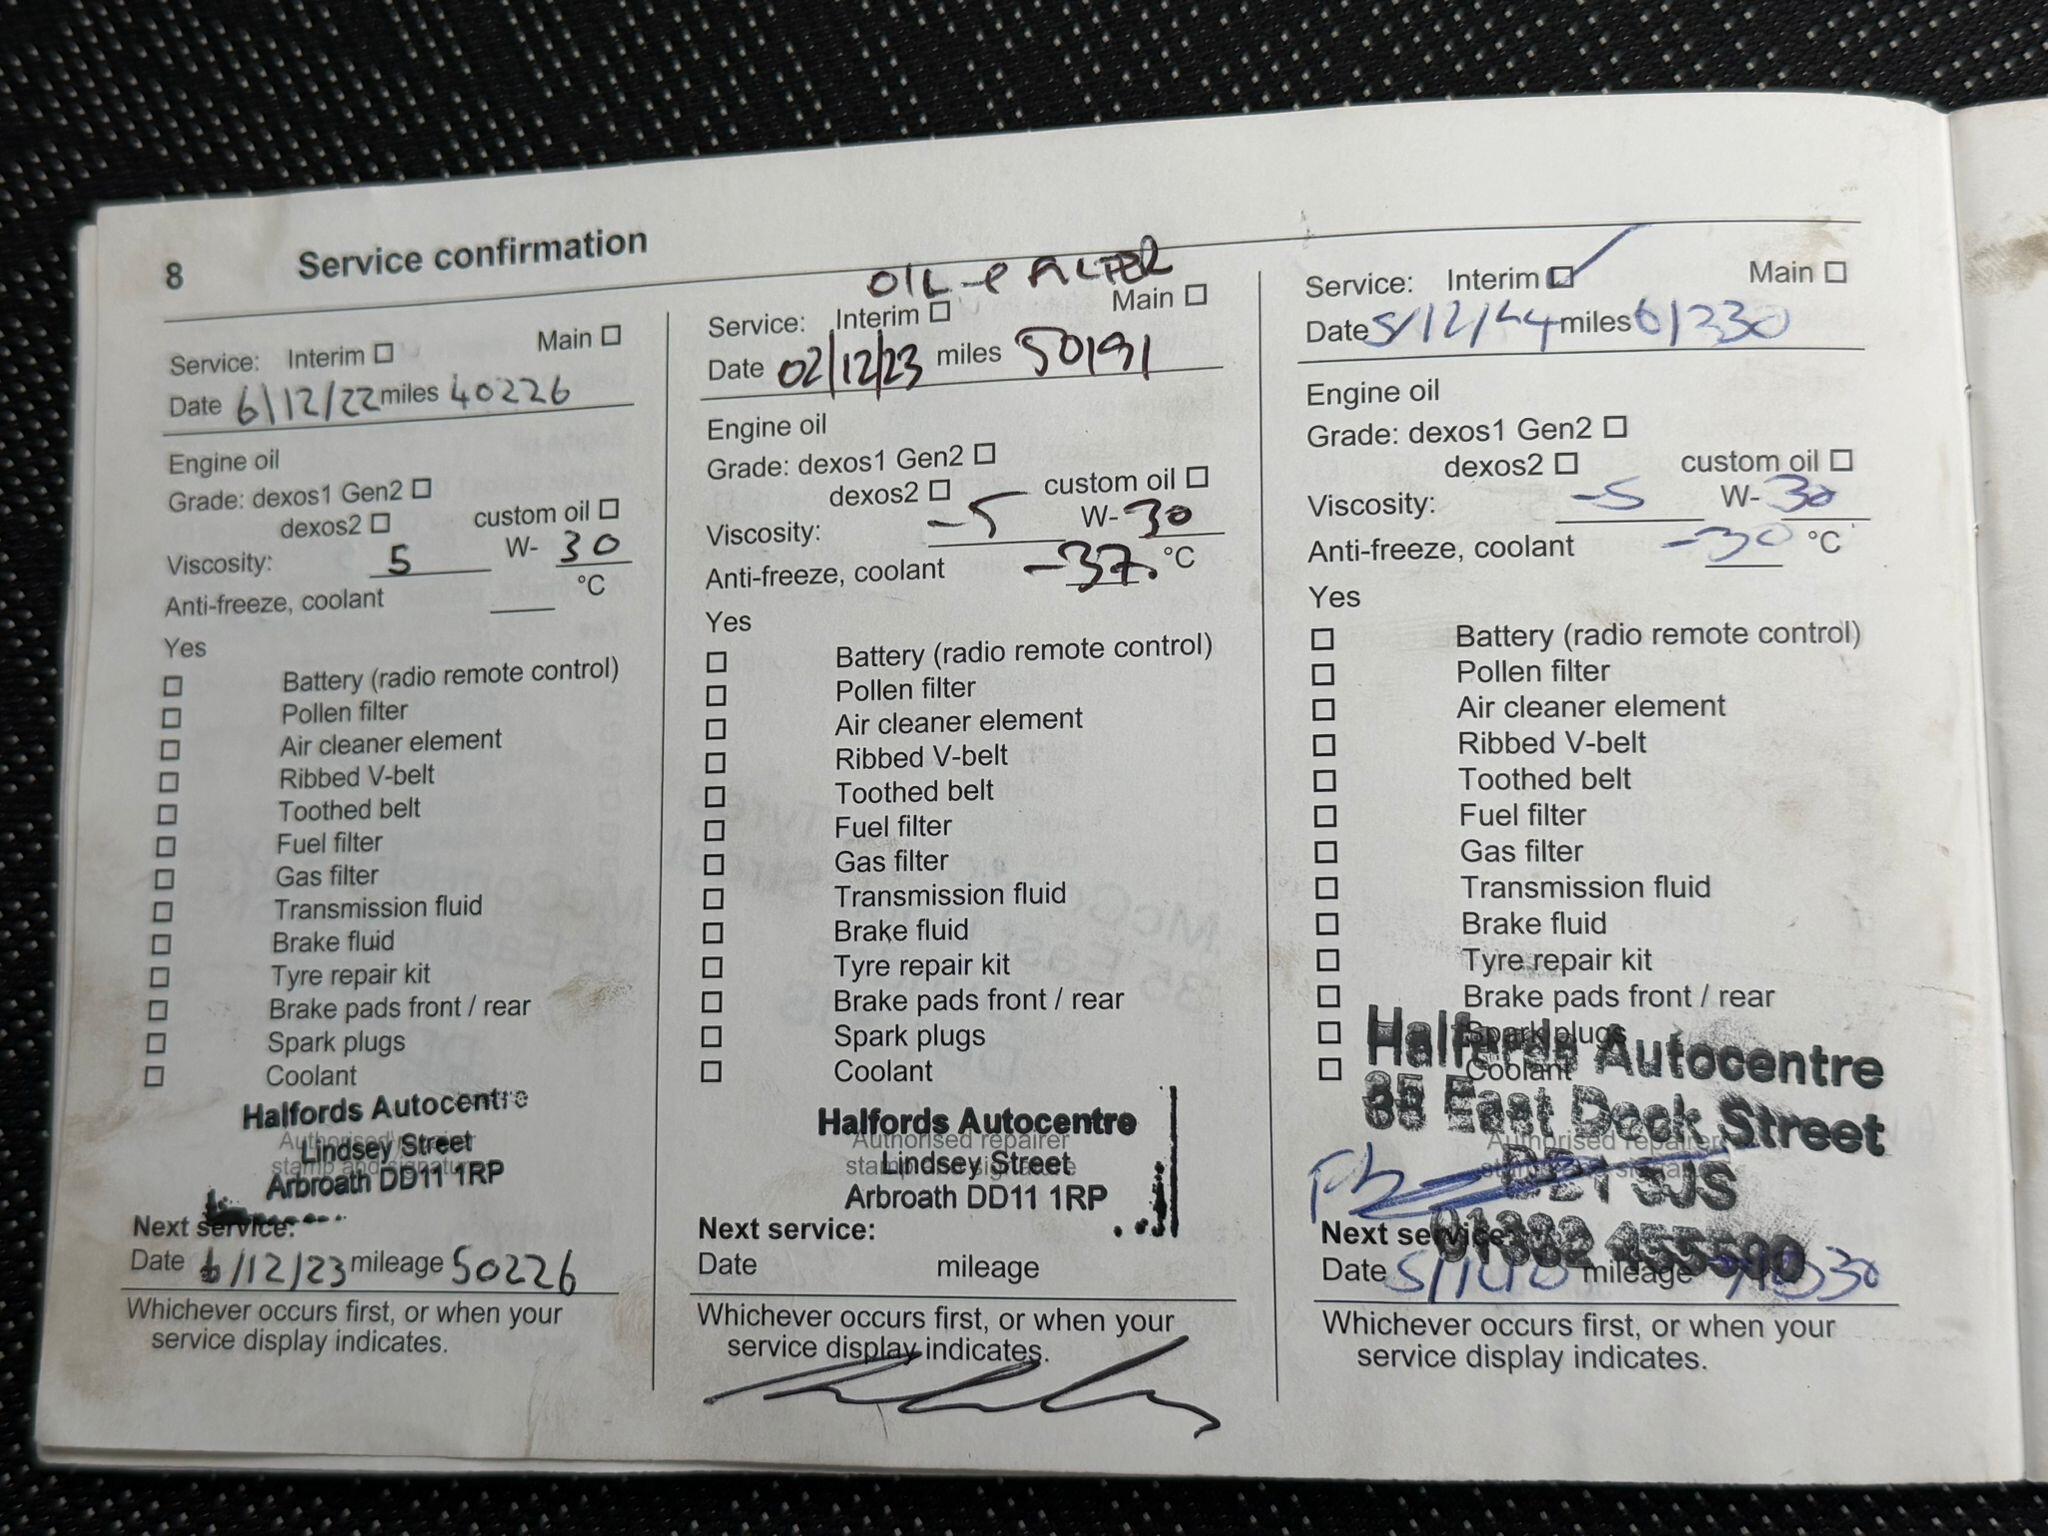 8 Service confirmation
Service: Interim ☐ Main ☐
Date 6/12/22 miles 40226
Engine oil
Grade: dexos1 Gen2 ☐
dexos2 ☐ custom oil ☐
Viscosity: 5 W- 30
Anti-freeze, coolant °C
Yes
☐ Battery (radio remote control)
☐ Pollen filter
☐ Air cleaner element
☐ Ribbed V-belt
☐ Toothed belt
☐ Fuel filter
☐ Gas filter
☐ Transmission fluid
☐ Brake fluid
☐ Tyre repair kit
☐ Brake pads front / rear
☐ Spark plugs
☐ Coolant
Halfords Autocentre
Authorised repairer
Lindsey Street
stamp and signature
Arbroath DD11 1RP
Next service:
Date 6/12/23 mileage 50226
Whichever occurs first, or when your
service display indicates.
OIL - e FILTER
Service: Interim ☐ Main ☐
Date 02/12/23 miles 50191
Engine oil
Grade: dexos1 Gen2 ☐
dexos2 ☐ custom oil ☐
Viscosity: -5 W- 30
Anti-freeze, coolant -37. °C
Yes
☐ Battery (radio remote control)
☐ Pollen filter
☐ Air cleaner element
☐ Ribbed V-belt
☐ Toothed belt
☐ Fuel filter
☐ Gas filter
☐ Transmission fluid
☐ Brake fluid
☐ Tyre repair kit
☐ Brake pads front / rear
☐ Spark plugs
☐ Coolant
Halfords Autocentre
Authorised repairer
Lindsey Street
stamp and signature
Arbroath DD11 1RP
Next service:
Date mileage
Whichever occurs first, or when your
service display indicates.
Service: Interim ☑ Main ☐
Date 5/12/24 miles 61330
Engine oil
Grade: dexos1 Gen2 ☐
dexos2 ☐ custom oil ☐
Viscosity: -5 W- 30
Anti-freeze, coolant -30 °C
Yes
☐ Battery (radio remote control)
☐ Pollen filter
☐ Air cleaner element
☐ Ribbed V-belt
☐ Toothed belt
☐ Fuel filter
☐ Gas filter
☐ Transmission fluid
☐ Brake fluid
☐ Tyre repair kit
☐ Brake pads front / rear
☐ Spark plugs
Halfords Autocentre
☐ Coolant
35 East Dock Street
Authorised repairer
stamp and signature
DD1 3JS
Next service:
01382 455590
Date mileage
Whichever occurs first, or when your
service display indicates.